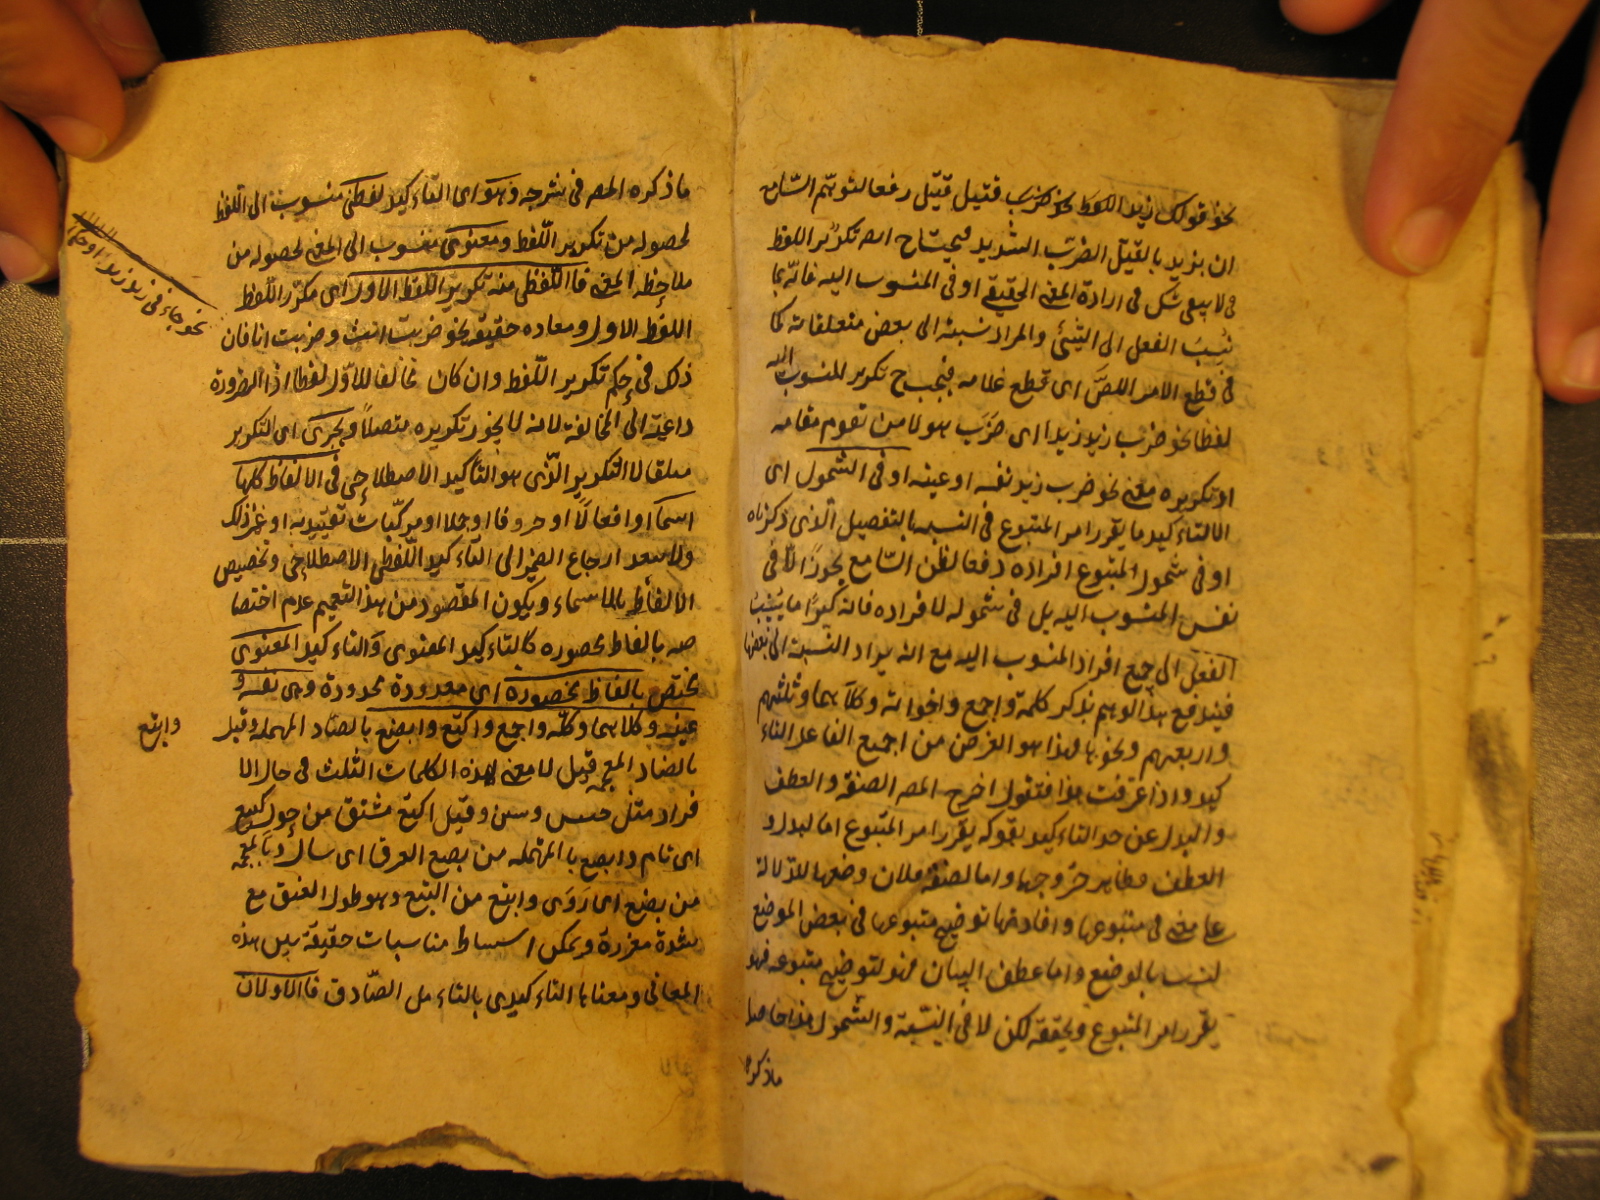 نحو قولك زيد اللفظ نحو ضرب قتيل قتيل رفعا لتوهم السامع
ان يريد بالقتيل الضرب الشديد فيحتاج الى تكرير اللفظ
لا يبقى شك فى ارادة المعنى الحقيقى او فى المنسوب اليه فانه ربما
نسب الفعل الى الشئ والمراد نسبته الى بعض متعلقاته كما
فى قطع الامير اللص اى قطع غلامه فيجب ح تكرير المنسوب اليه
لفظا نحو ضرب زيد زيد اى ضرب هو لا من تقوم مقامه
او تكريره معنى نحو ضرب زيد نفسه او عينه او فى الشمول اى
التاء كيد ما يقرر امر المتبوع فى النسبة بالتفصيل الذى ذكرناه
او فى شمول المتبوع افراده دفعا لظن السامع تجوزا لا فى
نفس المنسوب اليه بل فى شموله لافراده فانه كثيرا ما ينسب
الفعل الى جميع افراد المنسوب اليه مع انه يراد النسبة الى بعضها
فيندفع هذا الوهم بذكر كله واجمع واخواته وكلاهما وثلثتهم
واربعتهم ونحوها فهذا هو الغرض من جميع الفاظ التاء
كيد واذا عرفت هذا فنقول اخرج المص الصفة والعطف
والبدل عن حد التاء كيد بقوله يقرر امر المتبوع اما البدل و
العطف فظاهر خروجهما واما الصفة فلان وضعها للدلالة
على معنى فى متبوعها وافادتها توضيح متبوعها فى بعض الموضع
ليست بالوضع واما عطف البيان فهو لتوضيح متبوعه فهو
يقرر امر المتبوع ويحققه لكن لا فى النسبة والشمول هذا حاصل
ماذكره
ماذكره المص فى شرحه وهو اى التاء كيد لفظى منسوب الى اللفظ
لحصوله من تكرير اللفظ ومعنوى منسوب الى المعنى لحصوله من
ملاحظة المعنى فاللفظى منه تكرير اللفظ الاول اى مكرر اللفظ
نحو جاءنى زيد زيد او حكما
اللفظ الاول ومعاده حقيقة نحو ضربت انت وضربت انا فان
ذلك فى حكم تكرير اللفظ وان كان مخالفا للاول لفظا اذ الضرورة
داعية الى المخالفة لانه لا يجوز تكريره متصلا ويجرى اى التكرير
مطلقا لا التكرير الذى هو التأكيد الاصطلاحى فى الالفاظ كلها
اسماء او افعالا او حروفا او جملا او مركبات تقييدية او غير ذلك
ولا يبعد ارجاع الضمير الى التاء كيد اللفظى الاصطلاحى وتخصيص
الالفاظ بالاسماء ويكون المقصود من هذا التعميم عدم اختصا
صه بالفاظ محصوره كالتاء كيد المعنوى والتاء كيد المعنوى
يختص بالفاظ محصورة اى معدودة محدودة وهى نفسه و
عينه وكلاهما وكله واجمع واكتع وابصع بالصاد المهملة وقيل
وابتع
بالضاد المعجمة قيل لا معنى لهذه الكلمات الثلث فى حال الا
فراد مثل حسن بسن وقيل اكتع مشتق من حول كتيع
اى تام وابصع بالمهملة من بصع العرق اى سال وبالمعجمة
من بضع اى روى وابتع من البتع وهو طول العنق مع
شدة مغرزه ويمكن استنباط مناسبات حقيقة بين هذه
المعانى ومعناها التاء كيدى بالتاء مل الصادق فالاولان